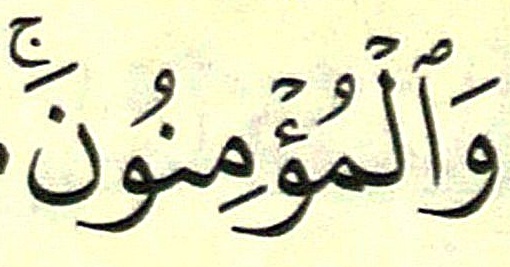 وَٱلۡمُؤۡمِنُونَۚ